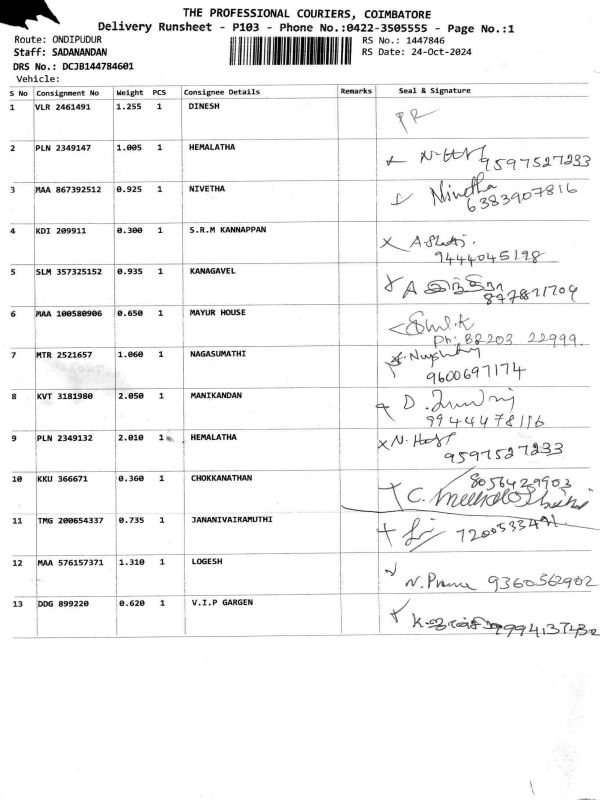 THE PROFESSIONAL COURIERS, COIMBATORE
Delivery Runsheet - P103 - Phone No.:0422-3505555 - Page No.:1
Route: ONDIPUDUR RS No.: 1447846
Staff: SADANANDAN RS Date: 24-Oct-2024
DRS No.: DCJB144784601
Vehicle:
S No Consignment No Weight PCS Consignee Details Remarks Seal & Signature
1 VLR 2461491 1.255 1 DINESH
2 PLN 2349147 1.005 1 HEMALATHA
9597527233
3 MAA 867392512 0.925 1 NIVETHA Nivetha
6383907816
4 KDI 209911 0.300 1 S.R.M KANNAPPAN
9444045198
5 SLM 357325152 0.935 1 KANAGAVEL A
6 MAA 100580906 0.650 1 MAYUR HOUSE
Ph: 88203 22999.
7 MTR 2521657 1.060 1 NAGASUMATHI
9600697174
8 KVT 3181980 2.050 1 MANIKANDAN D.
9944478116
9 PLN 2349132 2.010 1 HEMALATHA
9597527233
10 KKU 366671 0.360 1 CHOKKANATHAN 8056429903
C.
11 TMG 200654337 0.735 1 JANANIVAIRAMUTHI 7200533491
12 MAA 576157371 1.310 1 LOGESH
9360562902
13 DDG 899220 0.620 1 V.I.P GARGEN